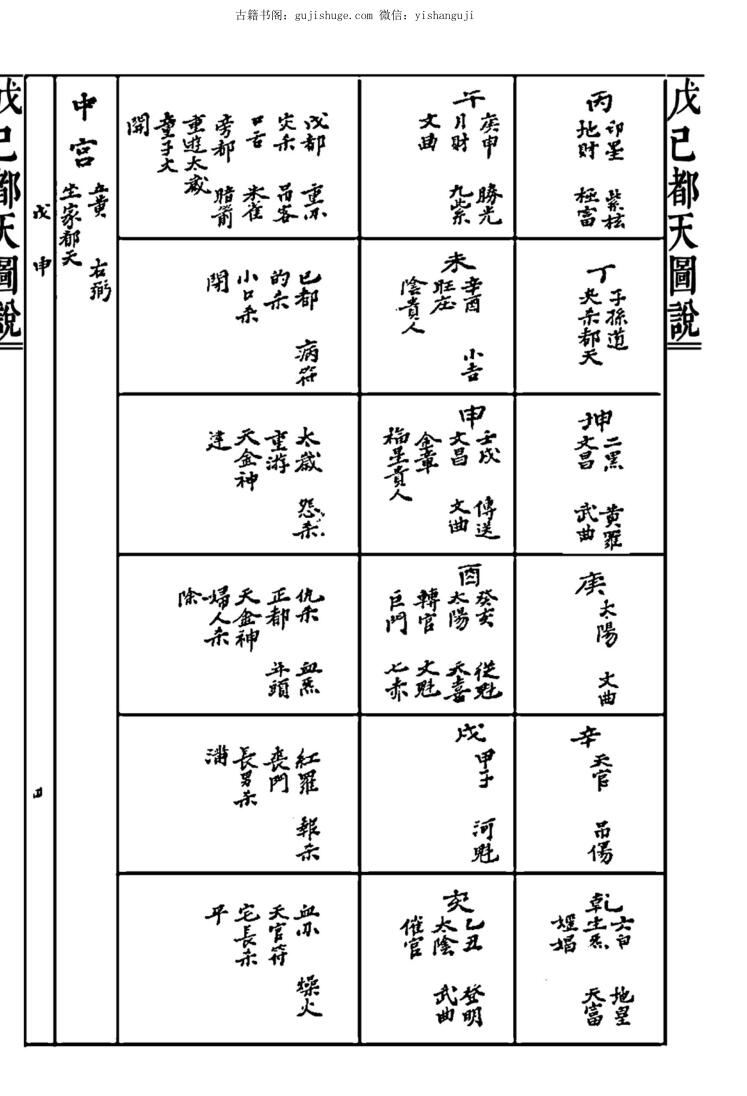 古籍书阁：gujishuge.com 微信：yishanguji
戊己都天圖說
丙
印星 紫柱
地財 極富
丁
子孫道
夾杀都天
坤
二黑 黄羅
文昌 武曲
庚
太陽 文曲
辛
天官 吊傷
乾
六白 地皇
生炁 天富
午
庚申 勝光
月財 九紫
文曲
未
辛酉 小吉
旺庄
陰貴人
申
壬戌 傳送
文昌 文曲
金章
福星貴人
酉
癸亥 從魁
太陽 天喜
轉官 文魁
巨門 七赤
戌
甲子 河魁
亥
乙丑 登明
太陰 武曲
催官
戊都 重刃
灾杀 吊客
口舌 朱雀
旁都 暗箭
重遊太歲
童子杀
開
己都 病符
的杀
小口杀
閉
太歲 怨杀
重游
天金神
建
仇杀 血炁
正都 斗頭
天金神
婦人杀
除
紅羅 報杀
喪門
長男杀
滿
血刃 燥火
天官符
宅長杀
平
中宮
五黄 右弼
坐家都天
戊申
四
戊己都天圖說